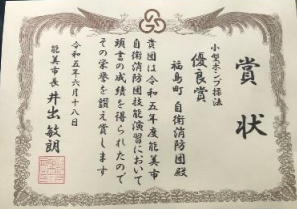 賞状
小型ポンプ操法
優良賞
福島町 自衛消防団殿
貴団は令和五年度能美市
自衛消防団技能演習において
頭書の成績を得られたので
その栄誉を讃え賞します
令和五年六月十八日
能美市長 井出敏朗